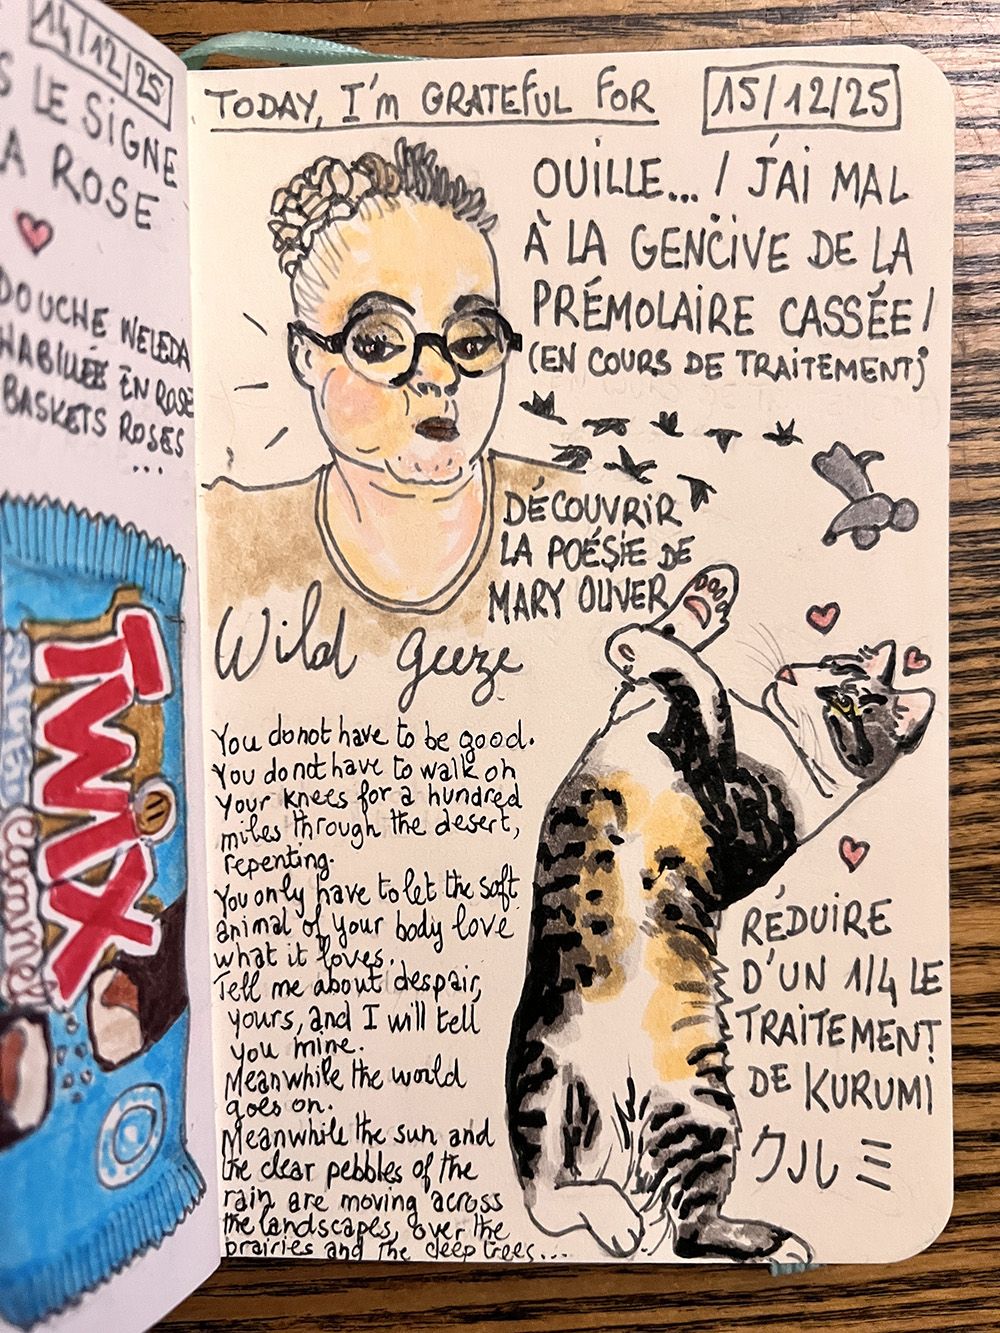 14/12/25
S LE SiGNE
A ROSE
DOUCHE WELEDA
HABILLÉE EN ROSE
BASKETS ROSES
...
TWIX
SALTED
Caramel
TODAY, I'm GRATEFUL FOR
15/12/25
OUILLE... ! J'AI MAL
À LA GENCIVE DE LA
PRÉMOLAIRE CASSÉE !
(EN COURS DE TRAITEMENT)
DÉCOUVRIR
LA POÉSIE DE
MARY OLIVER
Wild geeze
You do not have to be good.
You do not have to walk on
your knees for a hundred
miles through the desert,
repenting.
You only have to let the soft
animal of your body love
what it loves.
Tell me about despair,
yours, and I will tell
you mine.
Meanwhile the world
goes on.
Meanwhile the sun and
the clear pebbles of the
rain are moving across
the landscapes, over the
prairies and the deep trees...
RÉDUIRE
D'UN 1/4 LE
TRAITEMENT
DE KURUMI
クルミ